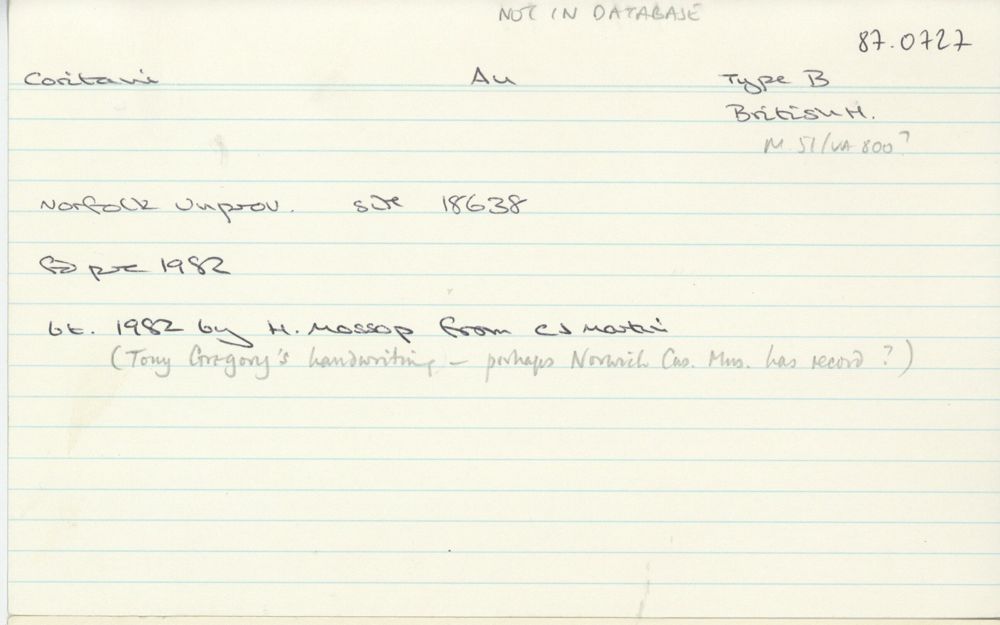 NOT IN DATABASE
87.0727
Coritani Au Type B
British H.
M. 51/VA 800?
Norfolk Unprov. site 18638
fd pre 1982
bt. 1982 by H. Mossop from CJ Martin
(Tony Gregory's handwriting – perhaps Norwich Cas. Mus. has record?)